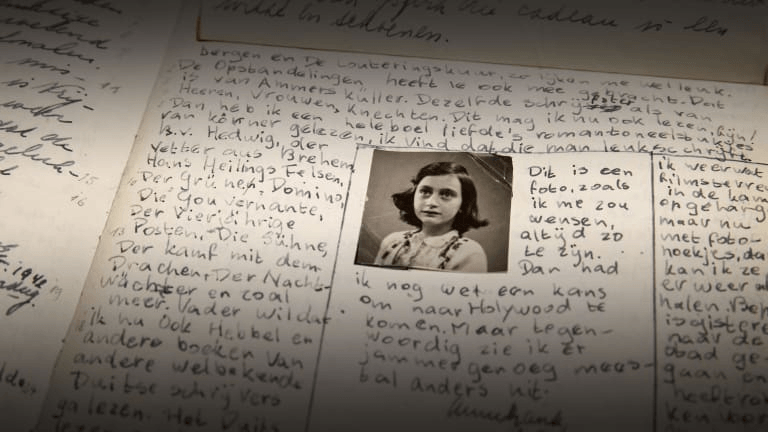 wilde en schoenen.
bergen en De Louteringskuur, zo lijken me wel leuk.
De Opstandelingen heeft ie ook mee gebracht. Dat
is van Ammers Küller. Dezelfde schrijfster als van
Heeren, Vrouwen, Knechten. Dit mag ik nu ook lezen, fijn!
Dan heb ik een heleboel liefde's romantoneelstukjes
van körner gelezen, ik vind dat die man leuk schrijft.
B.v. Hedwig, der
Vetter aus Brehem,
Hans Heilings Felsen,
Der Grünen Domino,
Die Gouvernante,
Der Vierjährige
Posten, Die Sühne,
Der kamf mit dem
Drachen, Der Nacht-
wächter en zoal
meer. Vader wil dat
ik nu ook Hebbel en
andere boeken van
andere welbekende
Duitse schrijvers
ga lezen. Het Duits
Dit is een
foto, zoals
ik me zou
wensen,
altijd zo
te zijn.
Dan had
ik nog wel een kans
om naar Holywood te
komen. Maar tegen-
woordig zie ik er
jammer genoeg mees-
tal anders uit.
Annefrank
ik weer wat
filmsterren
in de kam
opgehang
maar nu
met foto-
hoekjes, da
kan ik ze
er weer a
halen. Beh
is gistere
naar de
stad ge-
gaan en
heeft rok
ken voor